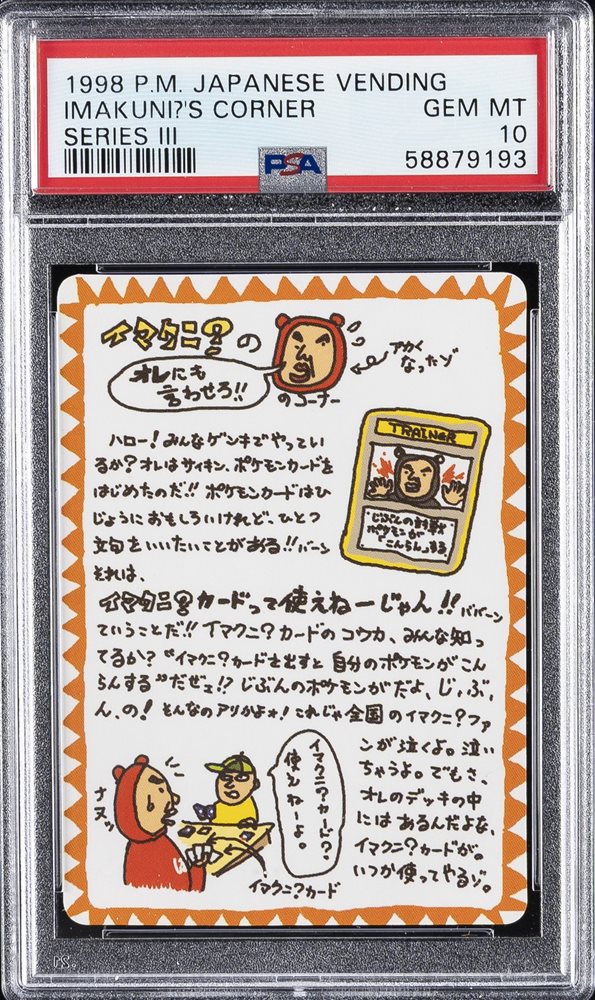 1998 P.M. JAPANESE VENDING
IMAKUNI?'S CORNER GEM MT
SERIES III 10
PSA 58879193
イマクニ?の
オレにも
言わせろ!!
のコーナー
アカく
なったゾ
ハロー!みんなゲンキでやってい
るか?オレはサイキン、ポケモンカードを
はじめたのだ!!ポケモンカードはひ
じょうにおもしろいけれど、ひとつ
文句をいいたいことがある!!バーン
それは、
TRAINER
じぶんの対戦
ポケモンが
"こんらん"する
イマクニ?カードって使えねーじゃん!!ババーン
ていうことだ!!イマクニ?カードのコウカ、みんな知っ
てるか?"イマクニ?カードを出すと自分のポケモンがこん
らんする"だぜェ!?じぶんのポケモンがだよ、じ、ぶ、
ん、の!そんなのアリかよォ!これじゃ全国のイマクニ?ファ
ンが泣くよ。泣い
ちゃうよ。でもさ、
オレのデッキの中
にはあるんだよな、
イマクニ?カードが。
いつか使ってやるゾ。
ナヌッ
イマクニ?カード?
使えねーよ。
イマクニ?カード